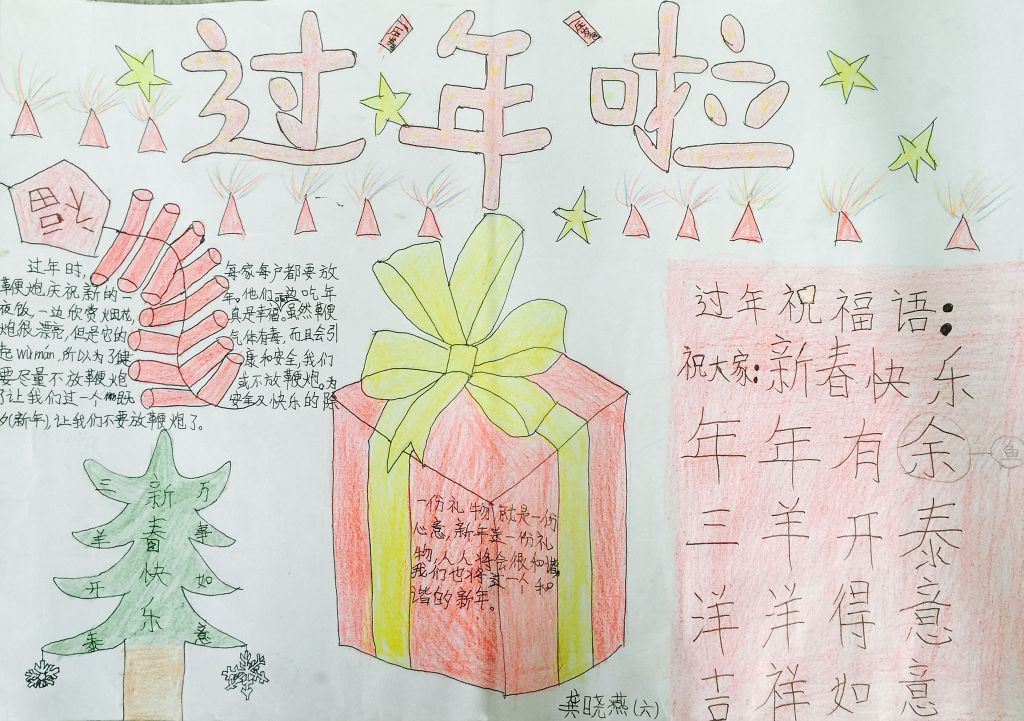 过年啦
福
过年时,每家每户都要放
鞭炮庆祝新的一年。他们一边吃年
夜饭,一边欣赏烟花,真是幸福。虽然鞭
炮很漂亮,但是它的气体有毒,而且会引
起wùmán,所以为了健康和安全,我们
要尽量不放鞭炮或不放鞭炮。为
了让我们过一个安全又快乐的除
夕(新年),让我们不要放鞭炮了。
三羊开泰
新春快乐
万事如意
一份礼物就是一份
心意,新年送一份礼
物,人人将会很和谐,
我们也将过一个和
谐的新年。
过年祝福语:
祝大家:新春快乐
年年有余 鱼
三羊开泰
洋洋得意
吉祥如意
龚晓燕(六)